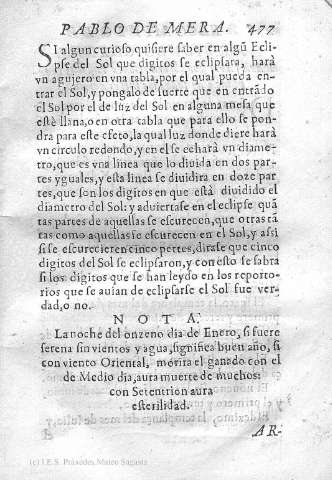 PABLO DE MERA. 477
SI algun curioso quisiere saber en algũ Ecli-
pse del Sol que digitos se eclipsara, harà
vn agujero en vna tabla, por el qual pueda en-
trar el Sol, y pongalo de suerte que en entrãdo
el Sol por el dè luz del Sol en alguna mesa que
estè llana, o en otra tabla que para ello se pon-
dra para este efeto, la qual luz donde diere harà
vn circulo redondo, y en el se echarà vn diame-
tro, que es vna linea que lo diuida en dos par-
tes yguales, y esta linea se diuidira en doze par
tes, que son los digitos en que està diuidido el
diametro del Sol: y aduiertase en el eclipse quã
tas partes de aquellas se escurecen, que otras tã
tas como aquellas se escurecen en el Sol, y assi
si se escurecieren cinco partes, dirase que cinco
digitos del Sol se eclipsaron, y con esto se sabra
si los digitos que se han leydo en los reporto-
rios que se auian de eclipsarse el Sol fue ver-
dad, o no.
NOTA.
La noche del onzeno dia de Enero, si fuere
serena sin vientos y agua, significa buen año, si
con viento Oriental, morira el ganado con el
de Medio dia, aura muerte de muchos:
con Setentrion aura
esterilidad.
AR-
(c) I.E.S. Práxedes Mateo Sagasta